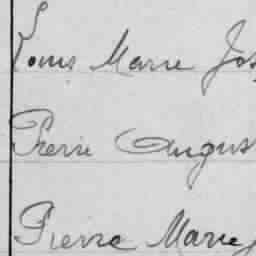 Louis Marie Jos
Pierre Augus
Pierre Marie